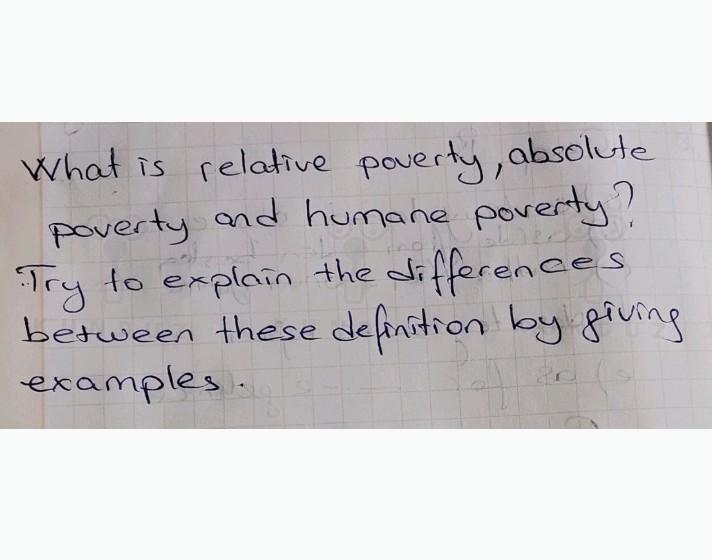 What is relative poverty, absolute
poverty and humane poverty?
Try to explain the differences
between these definition by giving
examples.